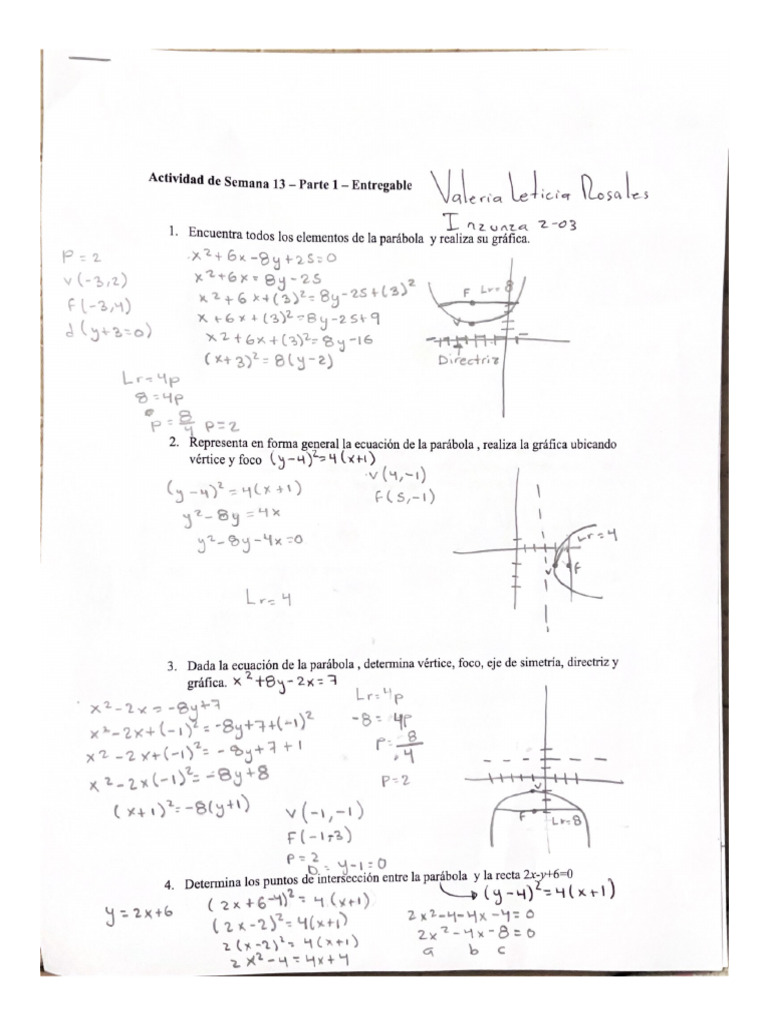 Actividad de Semana 13 – Parte 1 – Entregable
Valeria Leticia Rosales
Inzunza 2-03
1. Encuentra todos los elementos de la parábola y realiza su gráfica.
P = 2
V(-3,2)
f(-3,4)
d(y+3=0)
x²+6x-8y+25=0
x²+6x=8y-25
x²+6x+(3)²=8y-25+(3)²
x+6x+(3)²=8y-25+9
x²+6x+(3)²=8y-16
(x+3)²=8(y-2)
Lr=4p
8=4p
p=8/4 p=2
F Lr=8
V
Directriz
2. Representa en forma general la ecuación de la parábola , realiza la gráfica ubicando
vértice y foco (y-4)²=4(x+1)
(y-4)²=4(x+1)
y²-8y=4x
y²-8y-4x=0
Lr=4
V(4,-1)
f(5,-1)
Lr=4
V F
3. Dada la ecuación de la parábola , determina vértice, foco, eje de simetría, directriz y
gráfica. x²+8y-2x=7
x²-2x=-8y+7
x²-2x+(-1)²=-8y+7+(-1)²
x²-2x+(-1)²=-8y+7+1
x²-2x(-1)²=-8y+8
(x+1)²=-8(y+1)
Lr=4p
-8=4p
p=-8/4
p=2
V(-1,-1)
F(-1,-3)
P=2
D=y-1=0
V
F Lr=8
4. Determina los puntos de intersección entre la parábola y la recta 2x-y+6=0
(y-4)²=4(x+1)
y=2x+6
(2x+6-4)²=4(x+1)
(2x-2)²=4(x+1)
2(x-2)²=4(x+1)
2x²-4=4x+4
2x²-4-4x-4=0
2x²-4x-8=0
a b c